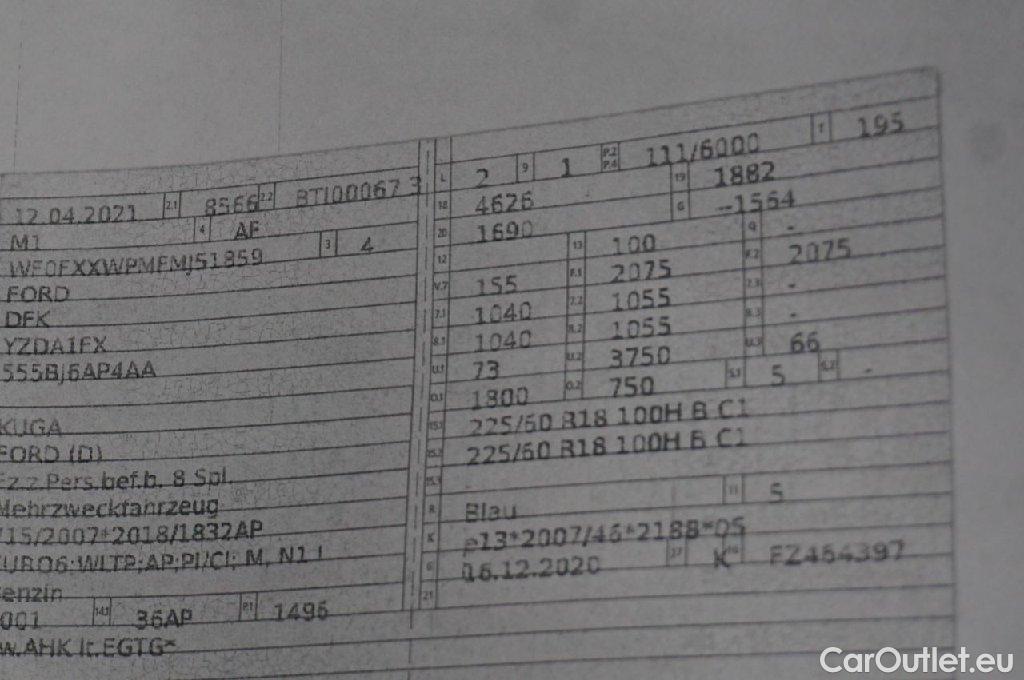 12.04.2021 2.1 8566 2.2 BTI00067 3
M1 4 AF
3 4
FORD
DFK
YZDA1FX
555BJ6AP4AA
KUGA
FORD (D)
Fz.z.Pers.bef.b. 8 Spl.
Mehrzweckfahrzeug
715/2007*2018/1832AP
EURO6;WLTP;AP;PI/CI; M, N1 I
Benzin
001 14.1 36AP P.1 1496
w.AHK lt.EGTG*
L 2 9 1 P.2 P.4 111/6000 T 195
18 4626 19 1882
20 1690 G --1564
12 13 100 Q -
V.7 155 F.1 2075 F.2 2075
7.1 1040 7.2 1055 7.3 -
8.1 1040 8.2 1055 8.3 -
U.1 73 U.2 3750 U.3 66
O.1 1800 O.2 750 S.1 5 S.2 -
15.1 225/60 R18 100H B C1
15.2 225/60 R18 100H B C1
15.3
R Blau 11 5
K e13*2007/46*2188*05
6 16.12.2020 17 K 16 FZ464397
21
CarOutlet.eu